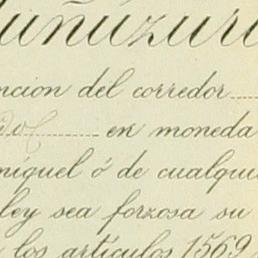 uñúzuri
ncion del corredor
en moneda
niquel ó de cualqui
ley sea forzosa su
los artículos 1569